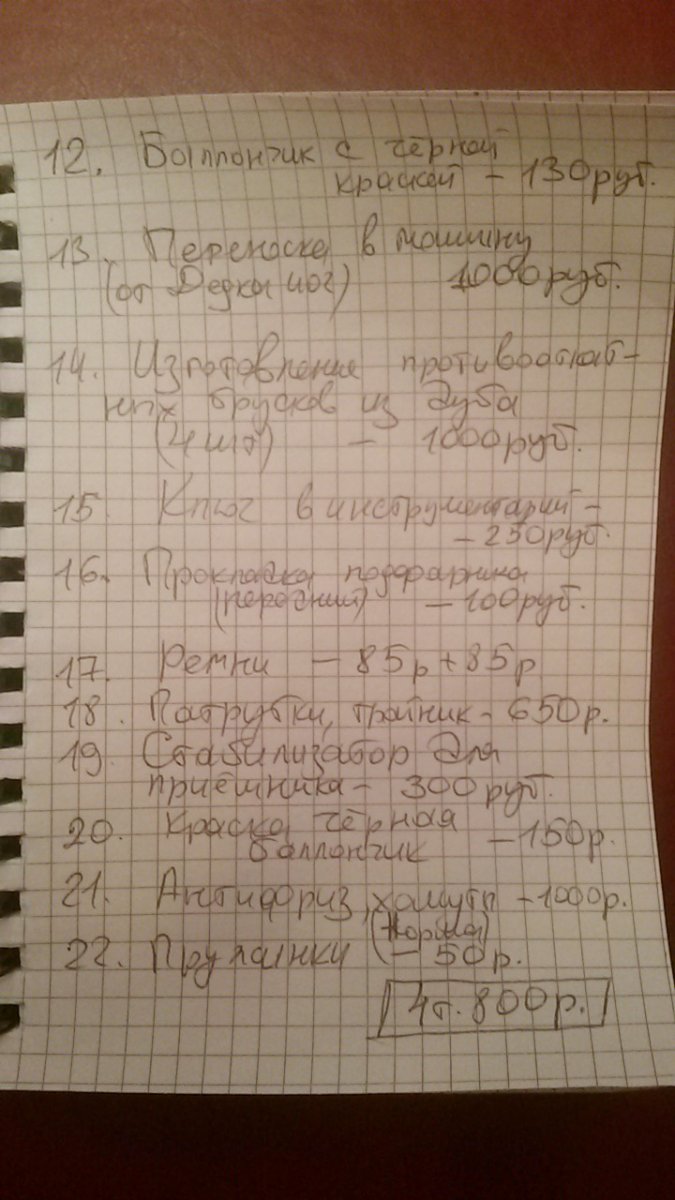 12. Баллончик с чёрной
краской - 130руб.
13. Переноска в машину
(от Дедка) 1000руб.
14. Изготовление противооткат-
ных брусков из дуба
(4 шт) - 1000руб.
15. Ключ в инструментарий -
- 250руб.
16. Прокладка подфарника
(передний) - 100руб.
17. Ремни - 85р + 85р
18. Патрубки, тройник - 650р.
19. Стабилизатор для
приёмника - 300руб.
20. Краска чёрная
баллончик - 150р.
21. Антифриз, хомуты - 1000р.
22. Пружинки - 50р.
4т. 800р.